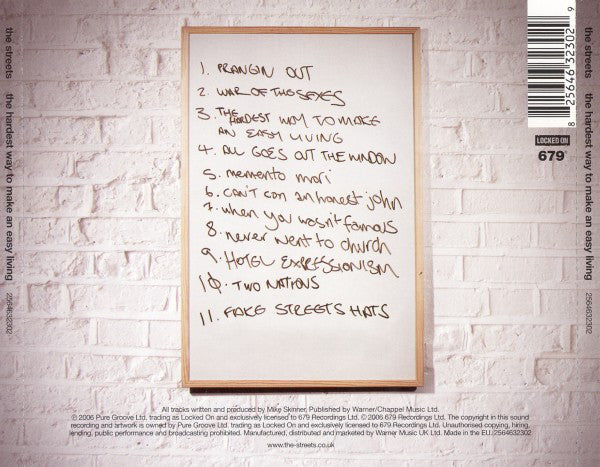 1. PRANGIN OUT
2. WAR OF THE SEXES
3. THE HARDEST WAY TO MAKE
AN EASY LIVING
4. ALL GOES OUT THE WINDOW
5. memento mori
6. can't con an honest john
7. when you wasn't famous
8. never went to church
9. HOTEL EXPRESSIONISM
10. TWO NATIONS
11. FAKE STREETS HATS
the streets the hardest way to make an easy living 2564632302
8 25646 32302 9
LOCKED ON
679
the streets the hardest way to make an easy living 2564632302
All tracks written and produced by Mike Skinner. Published by Warner/Chappel Music Ltd.
℗ 2006 Pure Groove Ltd. trading as Locked On and exclusively licensed to 679 Recordings Ltd. © 2006 679 Recordings Ltd. The copyright in this sound
recording and artwork is owned by Pure Groove Ltd. trading as Locked On and exclusively licensed to 679 Recordings Ltd. Unauthorised copying, hiring,
lending, public performance and broadcasting prohibited. Manufactured, distributed and marketed by Warner Music UK Ltd. Made in the EU. 2564632302
www.the-streets.co.uk